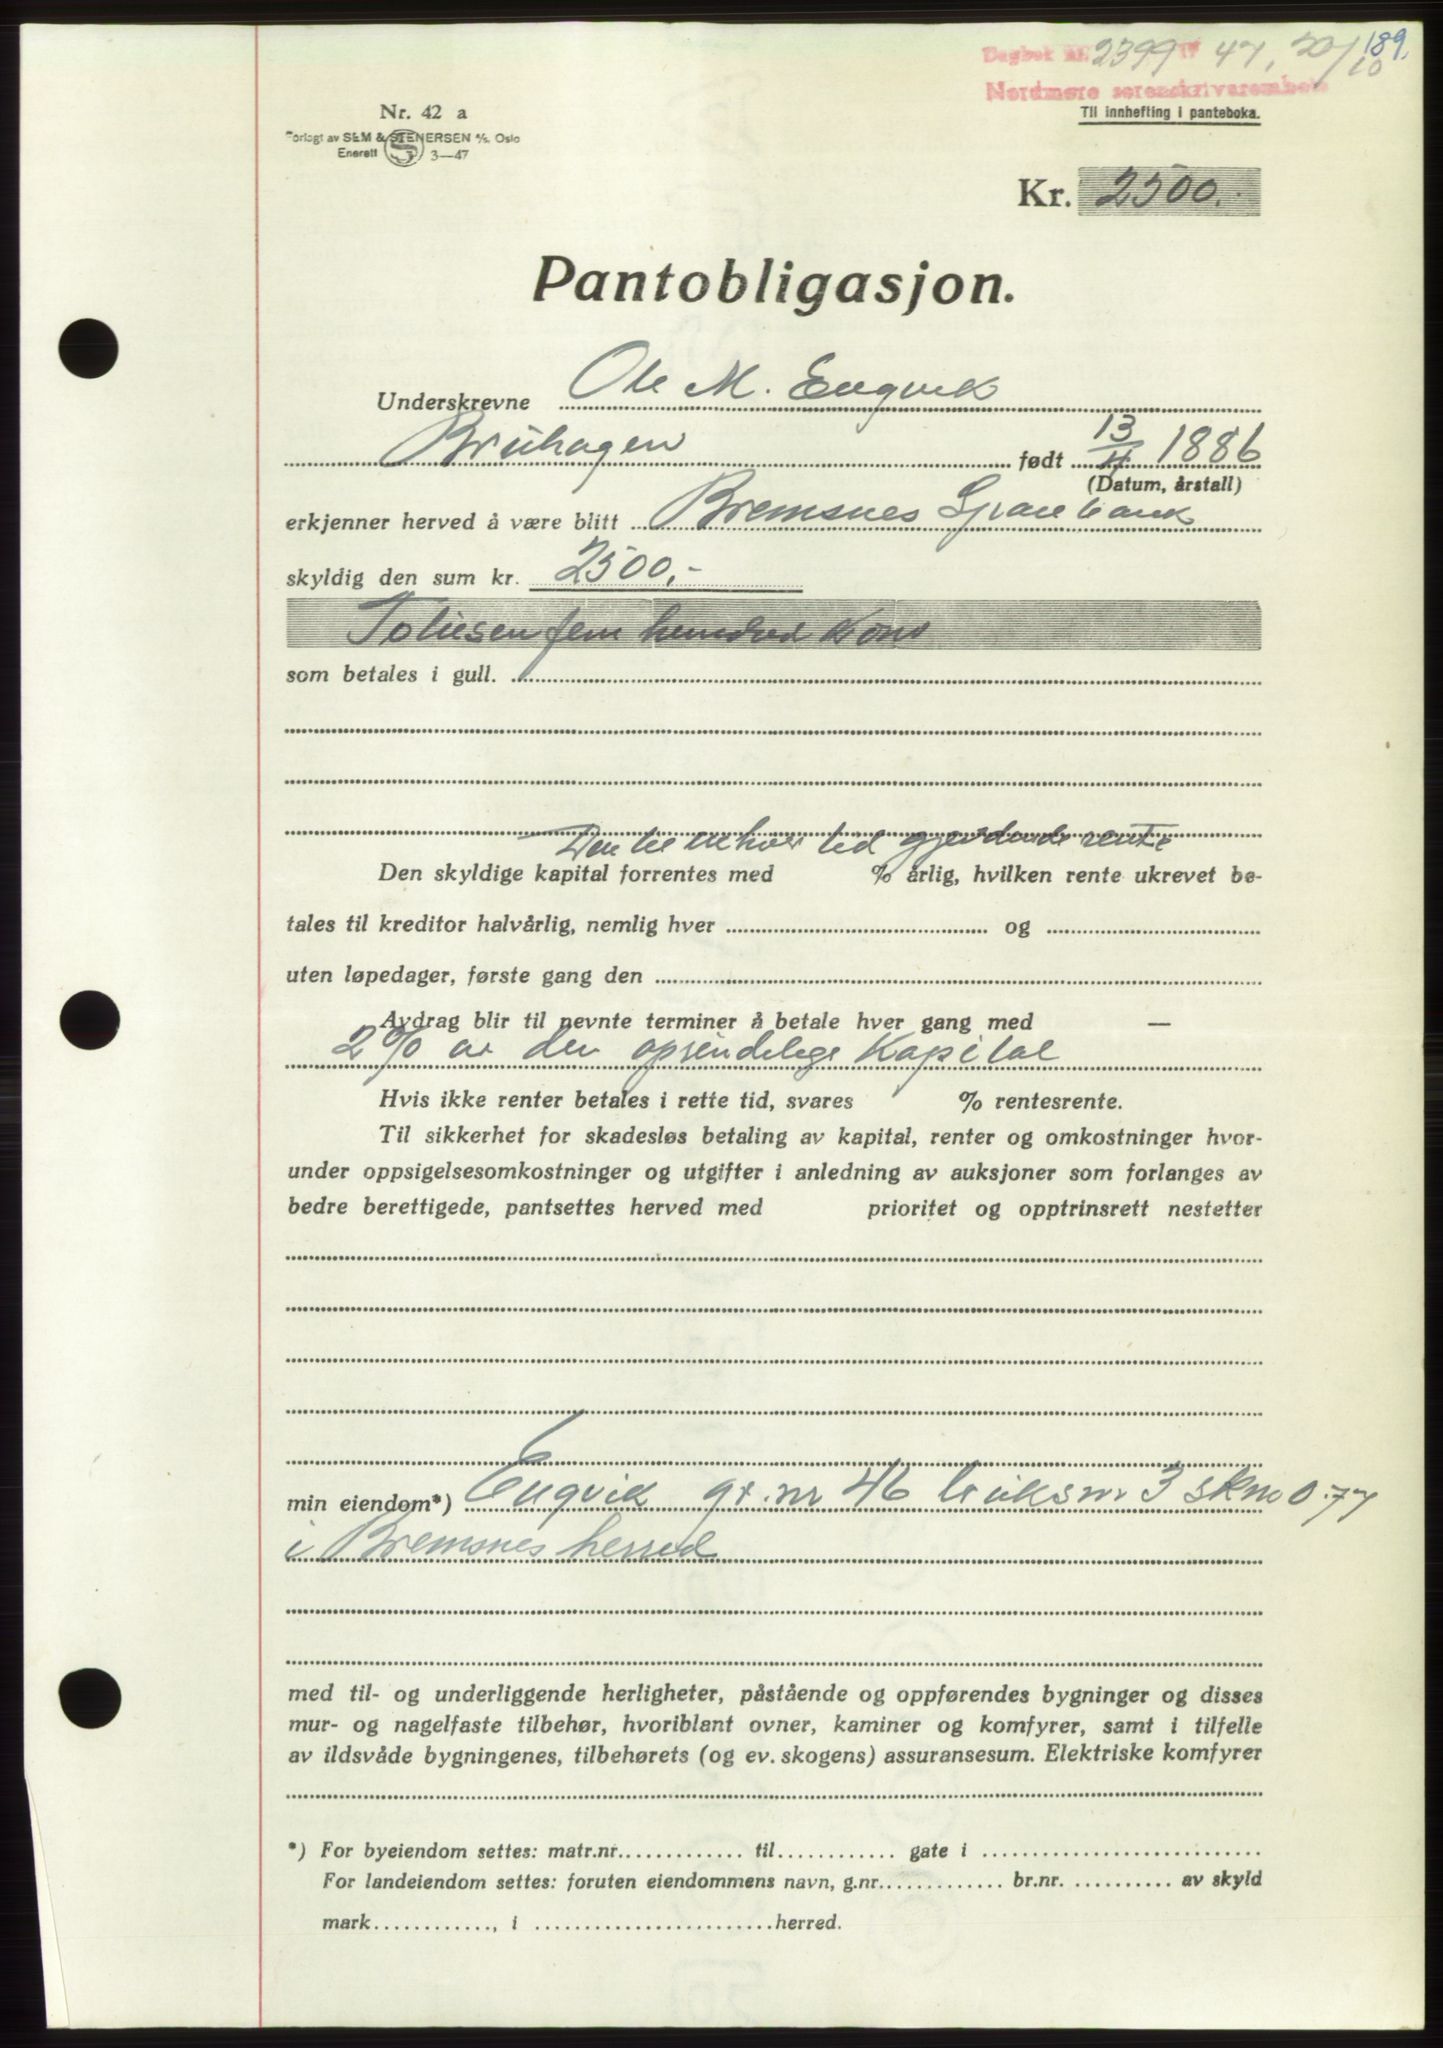 189.
Dagbok nr. 2399 19 47, 20/10
Nordmøre sorenskriverembete
Til innhefting i panteboka.
Nr. 42 a
Forlagt av SEM & STENERSEN A/S. Oslo
Enerett S 3—47
Kr. 2500.-
Pantobligasjon.
Underskrevne Ole M. Engvik
Bruhagen født 13/4 1886
(Datum, årstall)
erkjenner herved å være blitt Bremsnes Sparebank
skyldig den sum kr. 2500,-
Totusen fem hundred Kroner
som betales i gull.
Den til enhver tid gjeldende rente
Den skyldige kapital forrentes med % årlig, hvilken rente ukrevet be-
tales til kreditor halvårlig, nemlig hver og
uten løpedager, første gang den
Avdrag blir til nevnte terminer å betale hver gang med —
2% av den oprindelige Kapital
Hvis ikke renter betales i rette tid, svares % rentesrente.
Til sikkerhet for skadesløs betaling av kapital, renter og omkostninger hvor-
under oppsigelsesomkostninger og utgifter i anledning av auksjoner som forlanges av
bedre berettigede, pantsettes herved med prioritet og opptrinsrett nestetter
min eiendom*) Engvik gr.nr 46 bruksnr 3 skm 0.77
i Bremsnes herred
med til- og underliggende herligheter, påstående og oppførendes bygninger og disses
mur- og nagelfaste tilbehør, hvoriblant ovner, kaminer og komfyrer, samt i tilfelle
av ildsvåde bygningenes, tilbehørets (og ev. skogens) assuransesum. Elektriske komfyrer
*) For byeiendom settes: matr.nr. til gate i
For landeiendom settes: foruten eiendommens navn, g.nr. br.nr. av skyld
mark , i herred.